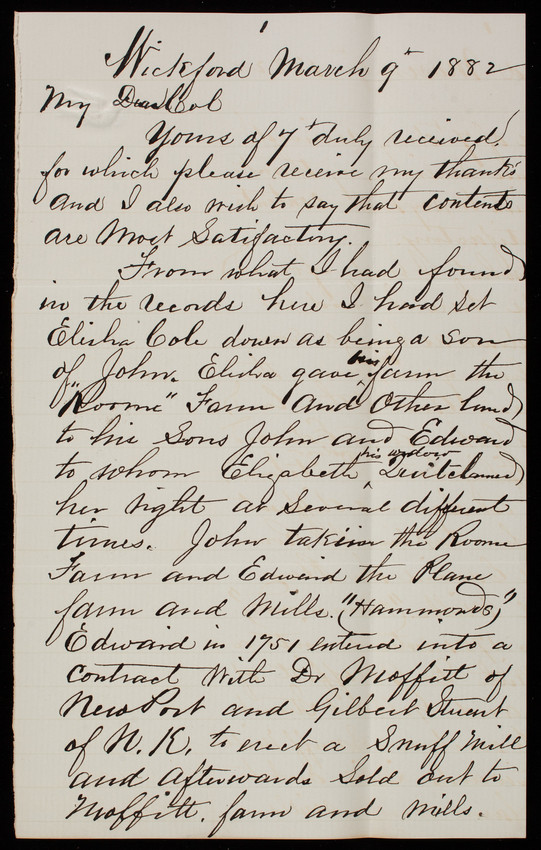 1
Wickford March 9th 1882
My Dear Col
Yours of 7th duly received,
for which please receive my thanks
and I also wish to say that contents
are Most Satifactory.
From what I had found
in the records here I had set
Elisha Cole down as being a son
of John. Elisha gave his farm the
"Roome" Farm and other land
to his Sons John and Edward
to whom Elizabeth his widow Quitclaimed
her right at Several different
times. John taking the Roome
Farm and Edward the Plane
farm and Mills. "(Hammonds)"
Edward in 1751 entered into a
Contract With Dr Moffitt of
NewPort and Gilbert Stuart
of N. K. to erect a Snuff Mill
and afterwards Sold out to
Moffitt. farm and mills.